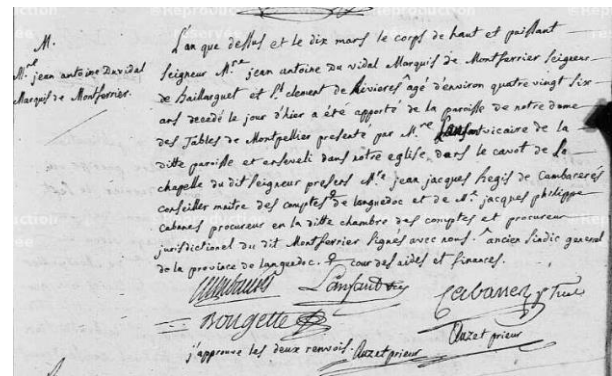 M.
M.re jean antoine Duvidal
Marquis de Montferrier.
L'an que dessus et le dix mars le corps de haut et puissant
seigneur M.re jean antoine du vidal Marquis de Montferrier seigneur
de Baillarguet et St. clement de Rivieres âgé d'environ quatre vingt six
ans decedé le jour d'hier a été apporté de la paroisse de notre dame
des Tables de Montpellier presenté par M.re Lanfant vicaire de la
ditte paroisse et enseveli dans notre eglise, dans le cavot de la
chapelle du dit seigneur presens M.re jean jacques Regis de Cambacerés
conseiller maitre des comptes de languedoc et de M.r jacques philippe
Cabanes procureur en la ditte chambre des comptes et procureur
jurisdictionel du dit Montferrier signés avec nous. ancien sindic general
de la province de languedoc. cour des aides et finances.
Lanfant
Cabanes
Rougette
Auzet prieur
j'approuve les deux renvois. Auzet prieur